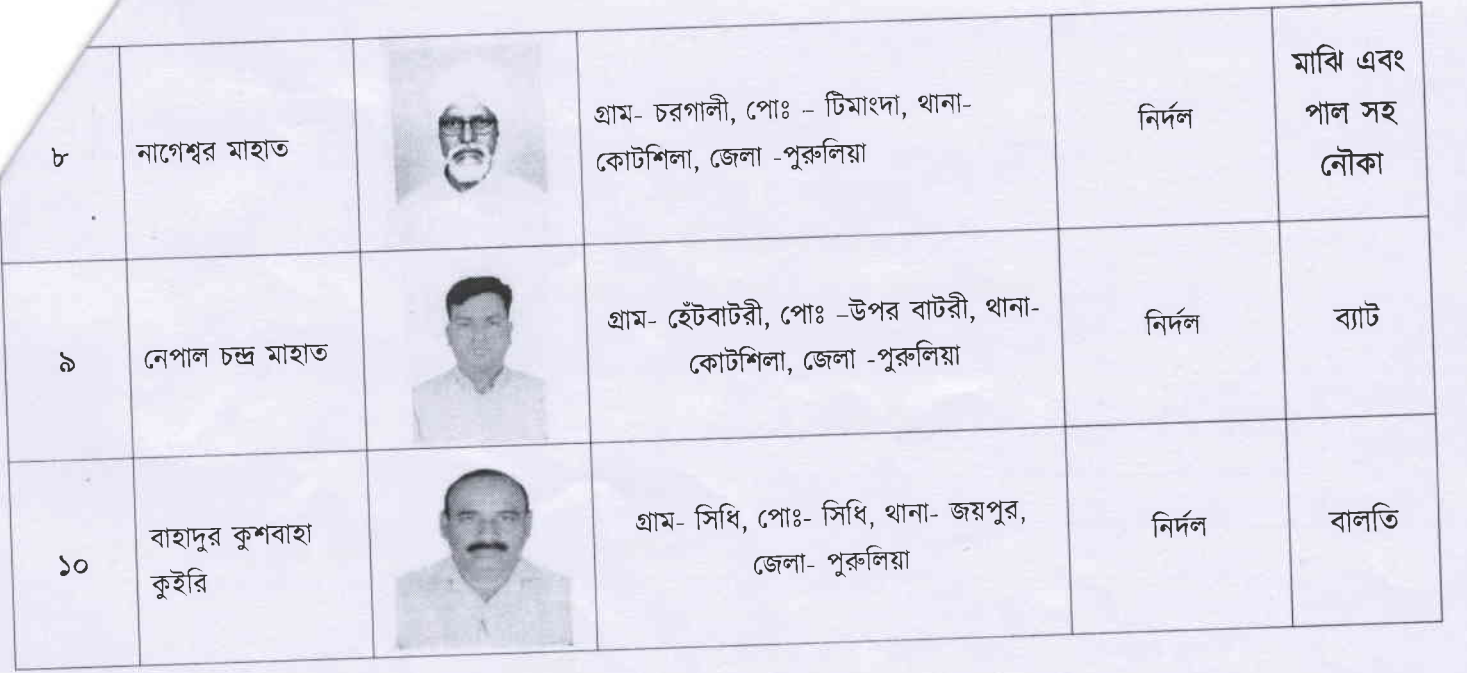 ৮
নাগেশ্বর মাহাত
গ্রাম- চরগালী, পোঃ – টিমাংদা, থানা-
কোটশিলা, জেলা -পুরুলিয়া
নির্দল
মাঝি এবং
পাল সহ
নৌকা
৯
নেপাল চন্দ্র মাহাত
গ্রাম- হেঁটবাটরী, পোঃ –উপর বাটরী, থানা-
কোটশিলা, জেলা -পুরুলিয়া
নির্দল
ব্যাট
১০
বাহাদুর কুশবাহা
কুইরি
গ্রাম- সিধি, পোঃ- সিধি, থানা- জয়পুর,
জেলা- পুরুলিয়া
নির্দল
বালতি